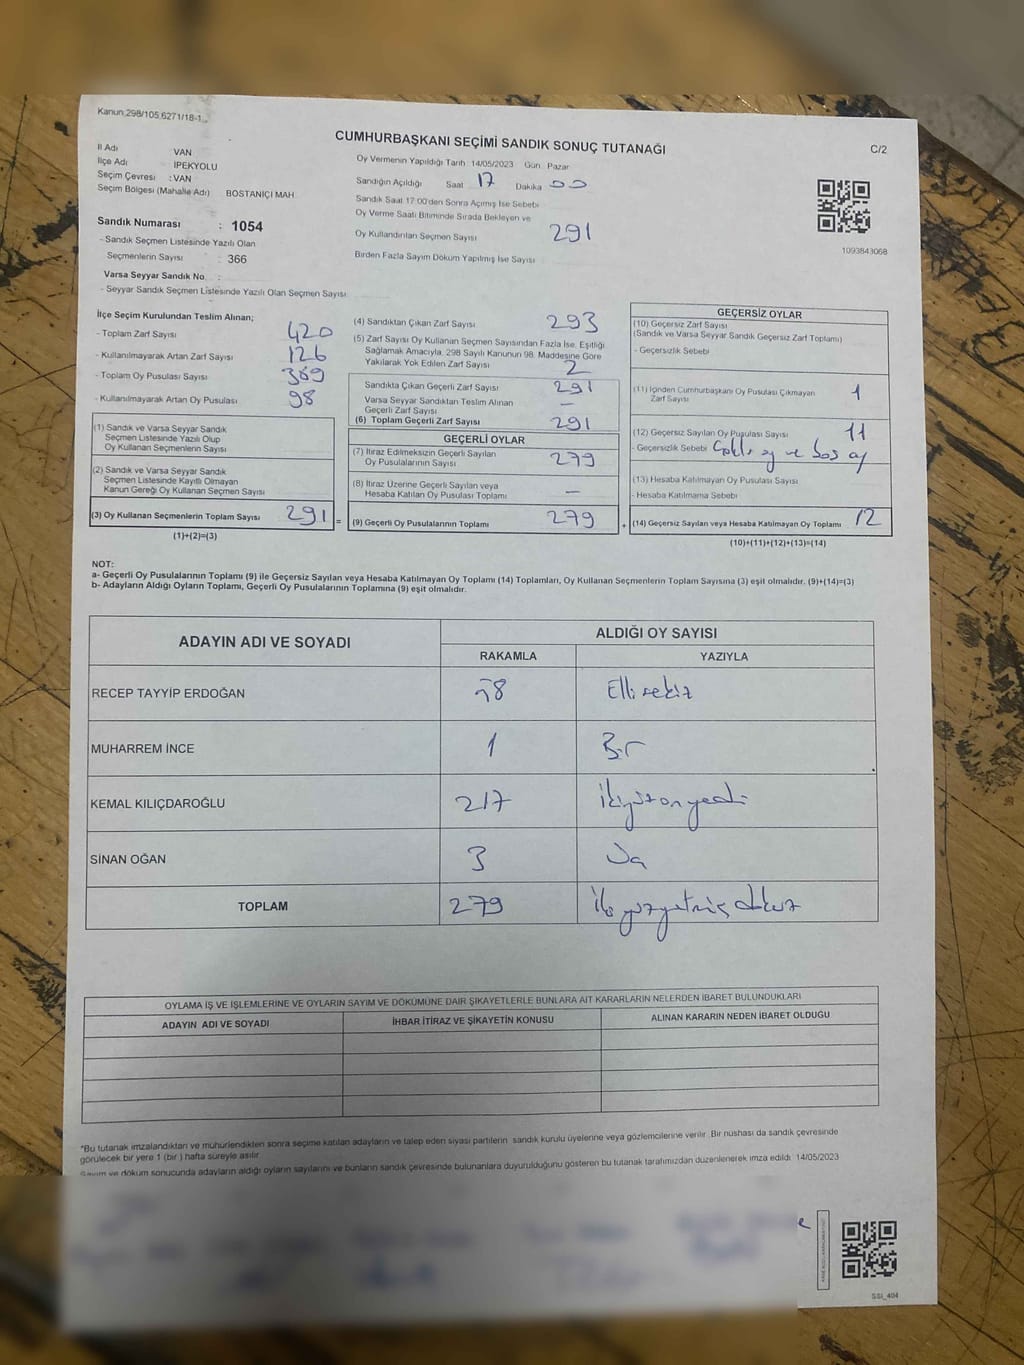 Kanun 298/105 6271/18-1
CUMHURBAŞKANI SEÇİMİ SANDIK SONUÇ TUTANAĞI
C/2
İl Adı VAN
İlçe Adı İPEKYOLU
Seçim Çevresi : VAN
Seçim Bölgesi (Mahalle Adı) BOSTANİÇİ MAH
Sandık Numarası : 1054
- Sandık Seçmen Listesinde Yazılı Olan
Seçmenlerin Sayısı : 366
Varsa Seyyar Sandık No :
- Seyyar Sandık Seçmen Listesinde Yazılı Olan Seçmen Sayısı
Oy Vermenin Yapıldığı Tarih 14/05/2023 Gün Pazar
Sandığın Açıldığı Saat 17 Dakika 00
Sandık Saat 17 00'den Sonra Açımış İse Sebebi
Oy Verme Saati Bitiminde Sırada Bekleyen ve
Oy Kullandırılan Seçmen Sayısı 291
Birden Fazla Sayım Döküm Yapılmış İse Sayısı
1093843068
İlçe Seçim Kurulundan Teslim Alınan;
- Toplam Zarf Sayısı 420
- Kullanılmayarak Artan Zarf Sayısı 126
- Toplam Oy Pusulası Sayısı 389
- Kullanılmayarak Artan Oy Pusulası 98
(1) Sandık ve Varsa Seyyar Sandık
Seçmen Listesinde Yazılı Olup
Oy Kullanan Seçmenlerin Sayısı
(2) Sandık ve Varsa Seyyar Sandık
Seçmen Listesinde Kayıtlı Olmayan
Kanun Gereği Oy Kullanan Seçmen Sayısı
(3) Oy Kullanan Seçmenlerin Toplam Sayısı 291 =
(1)+(2)=(3)
(4) Sandıktan Çıkan Zarf Sayısı 293
(5) Zarf Sayısı Oy Kullanan Seçmen Sayısından Fazla İse, Eşitliği
Sağlamak Amacıyla, 298 Sayılı Kanunun 98. Maddesine Göre
Yakılarak Yok Edilen Zarf Sayısı 2
Sandıkta Çıkan Geçerli Zarf Sayısı 291
Varsa Seyyar Sandıktan Teslim Alınan
Geçerli Zarf Sayısı —
(6) Toplam Geçerli Zarf Sayısı 291
GEÇERLİ OYLAR
(7) İtiraz Edilmeksizin Geçerli Sayılan
Oy Pusulalarının Sayısı 279
(8) İtiraz Üzerine Geçerli Sayılan veya
Hesaba Katılan Oy Pusulası Toplamı —
(9) Geçerli Oy Pusulalarının Toplamı 279 +
GEÇERSİZ OYLAR
(10) Geçersiz Zarf Sayısı
(Sandık ve Varsa Seyyar Sandık Geçersiz Zarf Toplamı)
- Geçersizlik Sebebi
(11) İçinden Cumhurbaşkanı Oy Pusulası Çıkmayan
Zarf Sayısı 1
(12) Geçersiz Sayılan Oy Pusulası Sayısı 11
- Geçersizlik Sebebi oy ve boş oy
(13) Hesaba Katılmayan Oy Pusulası Sayısı
- Hesaba Katılmama Sebebi
(14) Geçersiz Sayılan veya Hesaba Katılmayan Oy Toplamı 12
(10)+(11)+(12)+(13)=(14)
NOT:
a- Geçerli Oy Pusulalarının Toplamı (9) ile Geçersiz Sayılan veya Hesaba Katılmayan Oy Toplamı (14) Toplamları, Oy Kullanan Seçmenlerin Toplam Sayısına (3) eşit olmalıdır. (9)+(14)=(3)
b- Adayların Aldığı Oyların Toplamı, Geçerli Oy Pusulalarının Toplamına (9) eşit olmalıdır.
ADAYIN ADI VE SOYADI
ALDIĞI OY SAYISI
RAKAMLA YAZIYLA
RECEP TAYYİP ERDOĞAN 58 Elli sekiz
MUHARREM İNCE 1 Bir
KEMAL KILIÇDAROĞLU 217 İkiyüz onyedi
SİNAN OĞAN 3 Üç
TOPLAM 279 İki yüzyetmiş dokuz
OYLAMA İŞ VE İŞLEMLERİNE VE OYLARIN SAYIM VE DÖKÜMÜNE DAİR ŞİKAYETLERLE BUNLARA AİT KARARLARIN NELERDEN İBARET BULUNDUKLARI
ADAYIN ADI VE SOYADI İHBAR İTİRAZ VE ŞİKAYETİN KONUSU ALINAN KARARIN NEDEN İBARET OLDUĞU
*Bu tutanak imzalandıktan ve mühürlendikten sonra seçime katılan adayların ve talep eden siyasi partilerin sandık kurulu üyelerine veya gözlemcilerine verilir. Bir nüshası da sandık çevresinde
görülecek bir yere 1 (bir ) hafta süreyle asılır.
Sayım ve döküm sonucunda adayların aldığı oyların sayılarını ve bunların sandık çevresinde bulunanlara duyurulduğunu gösteren bu tutanak tarafımızdan düzenlenerek imza edildi. 14/05/2023
SSI_404